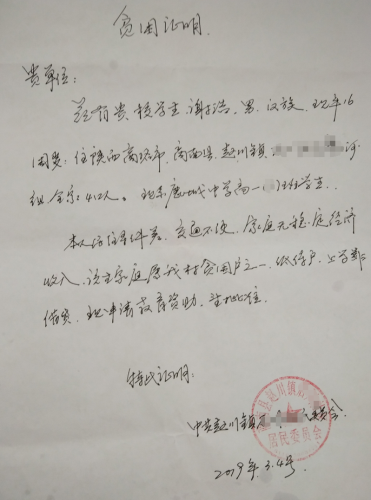 贫困证明
贵单位:
兹有贵校学生,谢,男,汉族,现年16
周岁,住陕西商洛市,商南县,赵川镇河
组全家4口人。现系中学高一班学生.
本人居住条件差,交通不便,家庭无稳定经济
收入,该生家庭属我村贫困户之一,低保户,上学都
借贷,现申请教育资助,
特此证明:
中共赵川镇委员会
县赵川镇
居民委员会
2019年.3.4号.